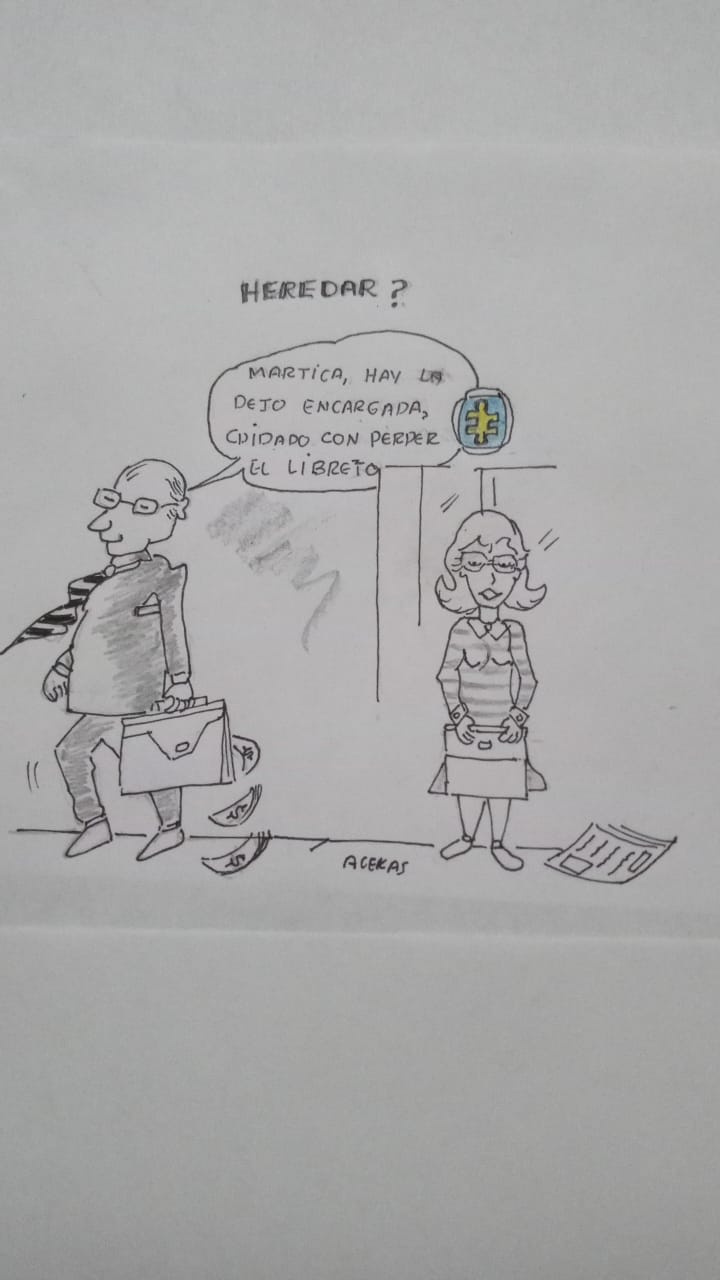 HEREDAR ?
MARTICA, HAY LA
DEJO ENCARGADA,
CUIDADO CON PERDER
EL LIBRETO
$
$
$
ACEKAS